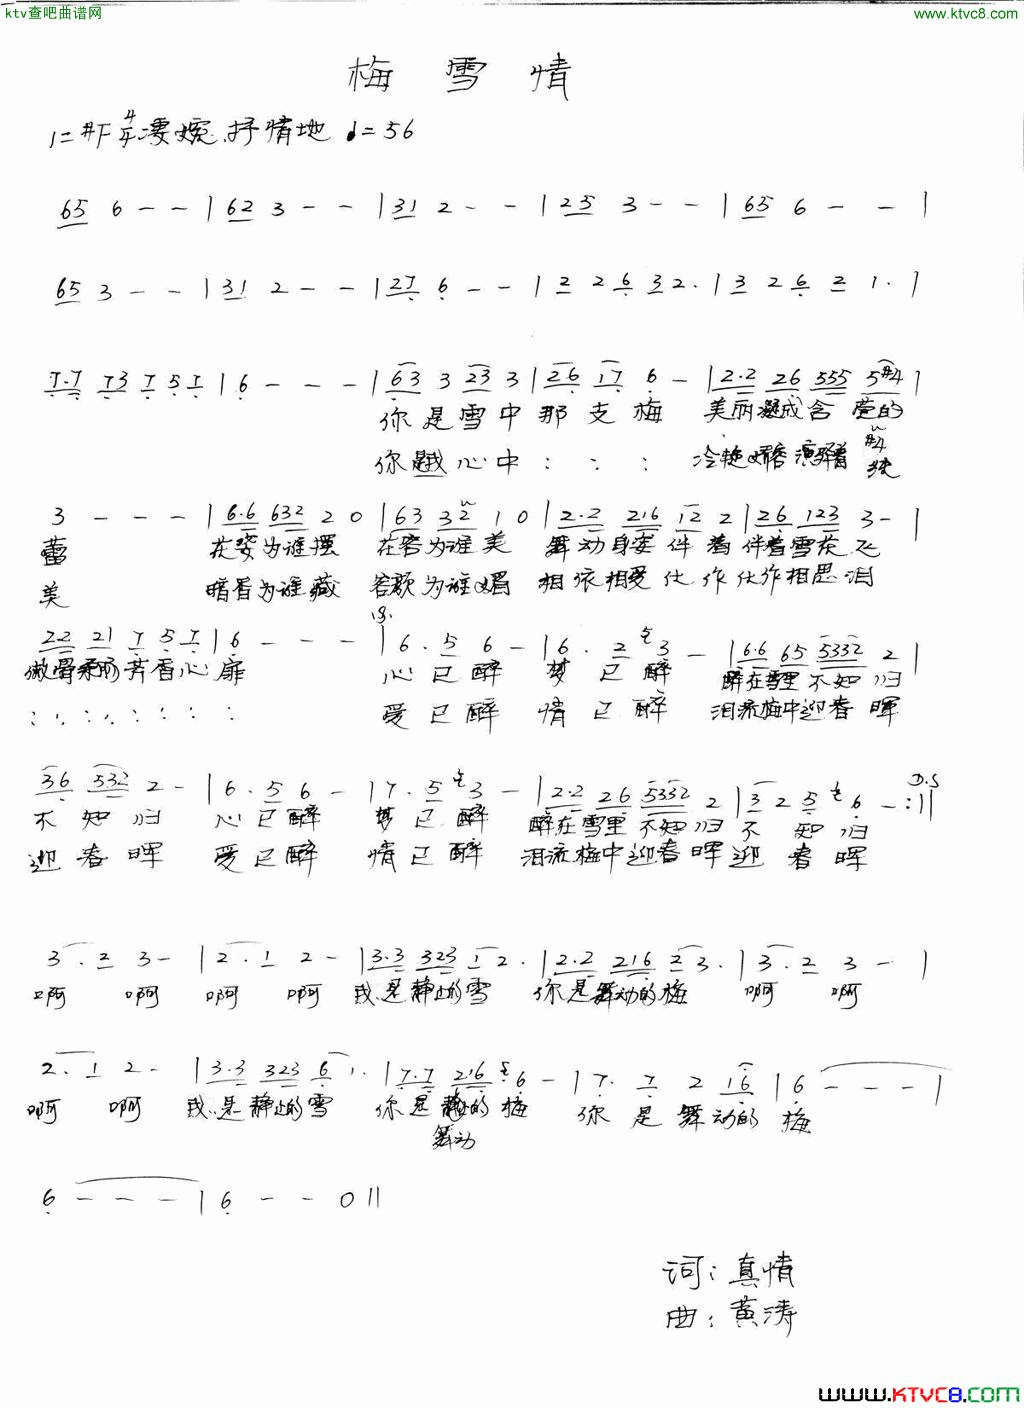 ktv查吧曲谱网
www.ktvc8.com
梅雪情
1=#F 4/4 凄婉.抒情地 ♩=56
65 6 - - | 62 3 - - | 31 2 - - | 25 3 - - | 65 6 - - |
65 3 - - | 31 2 - - | 27 6 - - | 2 2 6 32. | 3 2 6 2 1. |
7.7 73 7 5 7 | 6 - - - | 63 3 23 3 | 26 17 6 - | 2.2 26 555 5#4 |
你是雪中那支梅 美丽凝成含苞的
你是我心中 : : : 冷艳 演绎着 纯
3 - - - | 6.6 632 2 0 | 63 32 1 0 | 2.2 216 12 2 | 26 123 3 - |
蕾 花姿为谁摆 花容为谁美 舞动身姿伴着伴着雪花飞
美 暗香为谁藏 容歌为谁媚 相依相爱化作化作相思泪
22 21 7 5 7 | 6 - - - | 6. 5 6 - | 6. 2 3 - | 6.6 65 5332 2 |
傲骨柔肠芳香心扉 心已醉 梦已醉 醉在雪里不知归
: : : : : : : : 爱已醉 情已醉 泪流梅中迎春晖
36 532 2 - | 6. 5 6 - | 7. 5 3 - | 2.2 26 5332 2 | 3 2 5 6 - :|| D.S
不知归 心已醉 梦已醉 醉在雪里不知归 不知归
迎春晖 爱已醉 情已醉 泪流梅中迎春晖 迎春晖
3. 2 3 - | 2. 1 2 - | 3.3 323 1 2. | 2.2 216 2 3. | 3. 2 3 - |
啊 啊 啊 啊 我是静止的雪 你是舞动的梅 啊 啊
2. 1 2 - | 3.3 323 6 1. | 7.7 216 6 - | 7. 7 2 16 | 6 - - - |
啊 啊 我是静止的雪 你是 的梅 你是舞动的梅
舞动
6 - - - | 6 - - 0 ||
词：真情
曲：黄涛
www.KTVC8.com